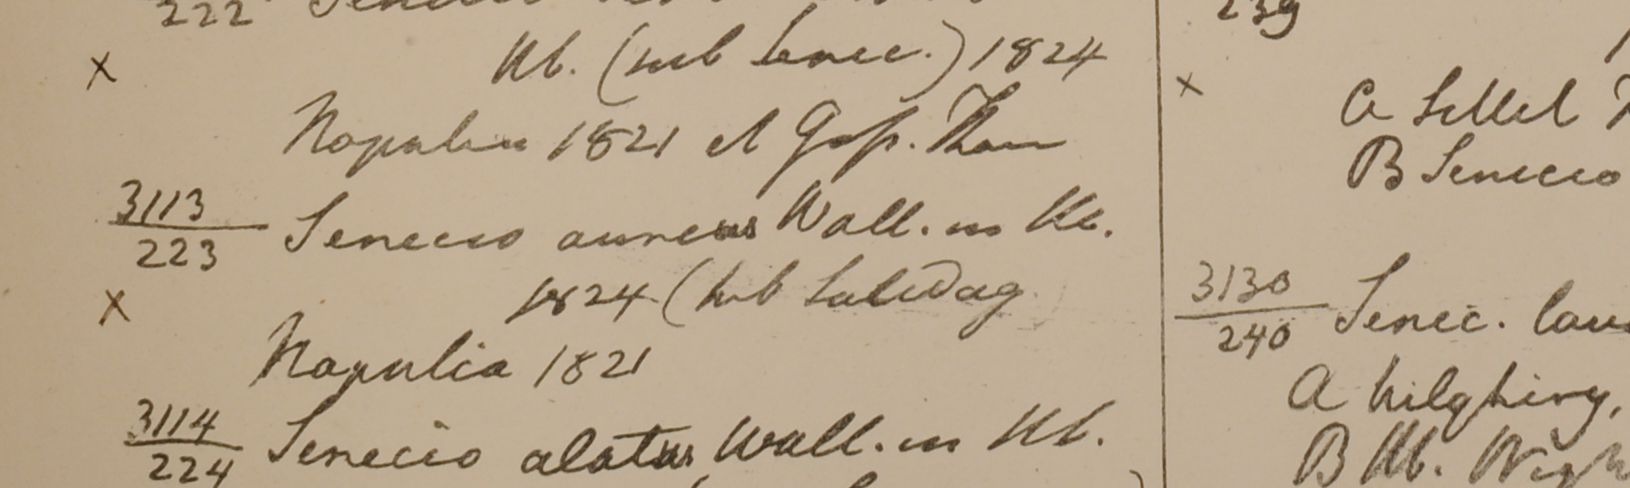 222 Senecio
Hb. (sub Senec.) 1824
Napulia 1821 et Gosp. Than
3113
223 Senecio aureus Wall. in Hb.
1824 (sub
Napulia 1821
3114
224 Senecio alatus Wall. in Hb.
239
A Sillet
B Senecio
3130
240 Senec.
A Nilghiry,
B Hb. Wigh